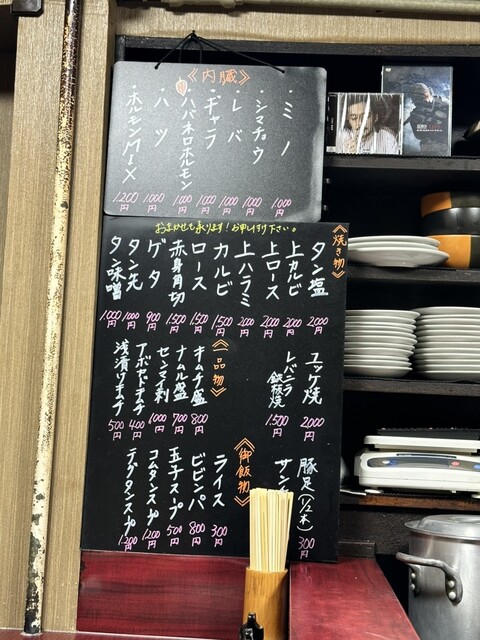 《内臓》
・ミノ 1000円
・シマチョウ 1000円
・レバ 1000円
・ギャラ 1000円
・ハバネロホルモン 1000円
・ハツ 1000円
・ホルモンMIX 1200円
おまかせも承ります!お申し付け下さい。
《焼き物》
タン塩 2000円
上カルビ 2000円
上ロース 2000円
上ハラミ 2000円
カルビ 1500円
ロース 1500円
赤身角切 1500円
ゲタ 900円
タン先 1000円
タン味噌 1000円
ユッケ焼 2000円
レバニラ鉄板焼 1500円
《一品物》
キムチ盛 800円
ナムル盛 700円
センマイ刺 1000円
アボカドキムチ 400円
浅漬けキムチ 500円
豚足(1/2本) 300円
《御飯物》
ライス 300円
ビビンバ 800円
玉子スープ 500円
コムタンスープ 1200円
テグタンスープ 1200円